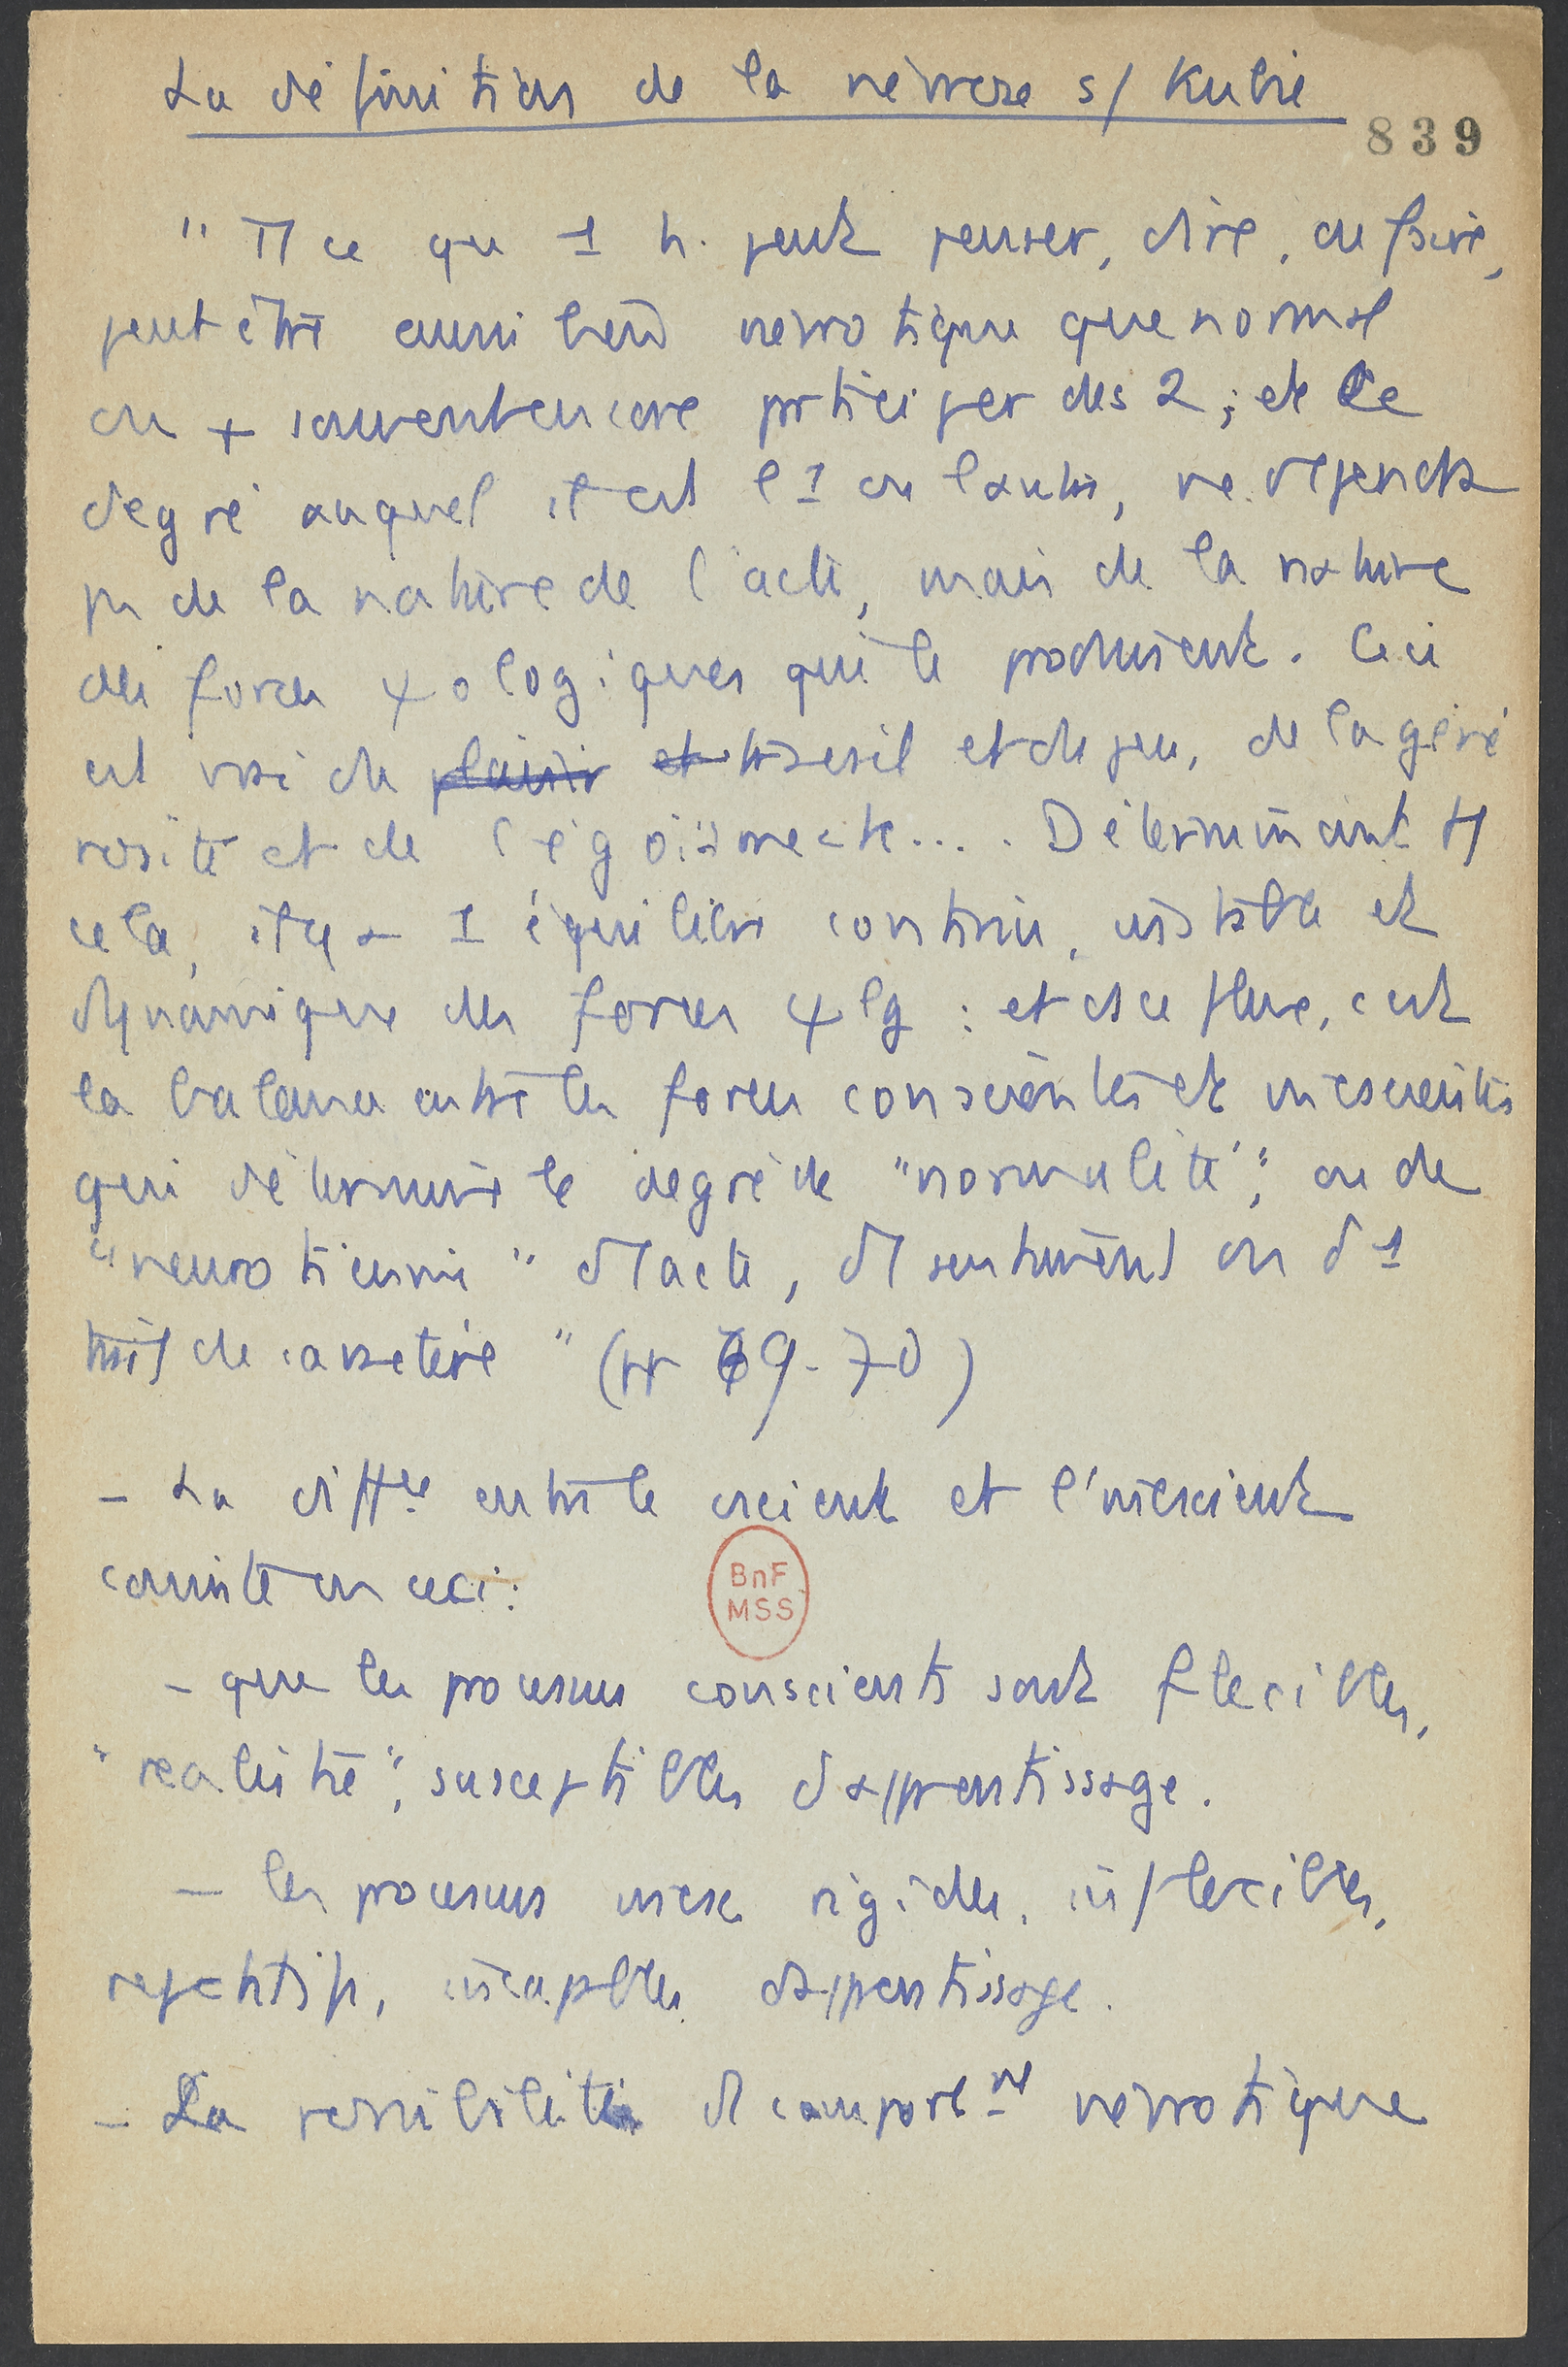 La définition de la névrose s/ Kubie
839
" Tt ce que 1 h. peut penser, dire, ou faire,
peut être aussi bien névrotique que normal
ou + souvent encore prticiper des 2 ; et le
degré auquel il est l'1 ou l'autre, ne dépend
ps de la nature de l'acte, mais de la nature
des forces ψologiques qui le produisent. Ceci
est vrai du plaisir et travail et du jeu, de la géné
rosité et de l'égoïsme etc.... Déterminant tt
cela, il y a 1 équilibre continu, instable et
dynamique des forces ψlg : et ds ce flux, c'est
la balance entre les forces conscientes et incscientes
qui détermine le degré de "normalité", ou de
"neuroticisme" d'1 acte, d'1 sentiment ou d'1
trait de caractère " (pp 69-70)
- La diffce entre le cscient et l'incscient
consiste en ceci :
BnF
MSS
- que les processus conscients sont flexibles,
"réaliste", susceptibles d'apprentissage.
- les processus incsc. rigides, inflexibles,
répétitifs, incapables d'apprentissage.
- La d'1 comportmt névrotique